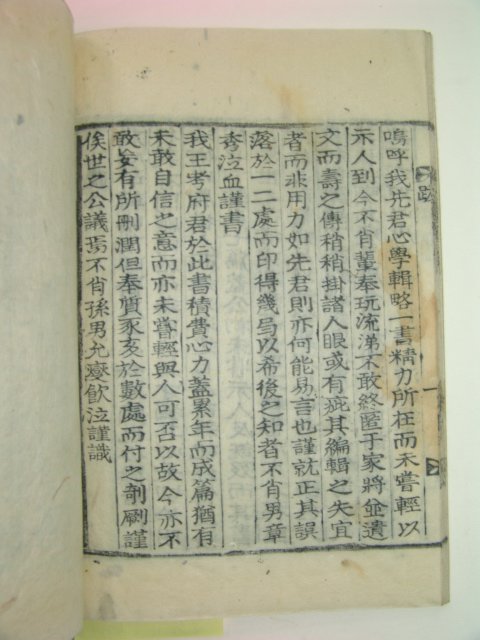 嗚呼我先君心學輯略一書精力所在而未嘗輕以
示人到今不肖輩奉玩流涕不敢終匿于家將並遺
文而壽之傳稍稍掛諸人眼或有疵其編輯之失宜
者而非用力如先君則亦何能易言也謹就正其誤
落於一二處而印得幾局以希後之知者不肖男章
秀泣血謹書
我王考府君於此書積費心力蓋累年而成篇猶有
未敢自信之意而亦未嘗輕與人可否以故今亦不
敢妄有所刪潤但奉質豕亥於數處而付之剞劂謹
俟世之公議焉不肖孫男允燮飮泣謹識
跋
一